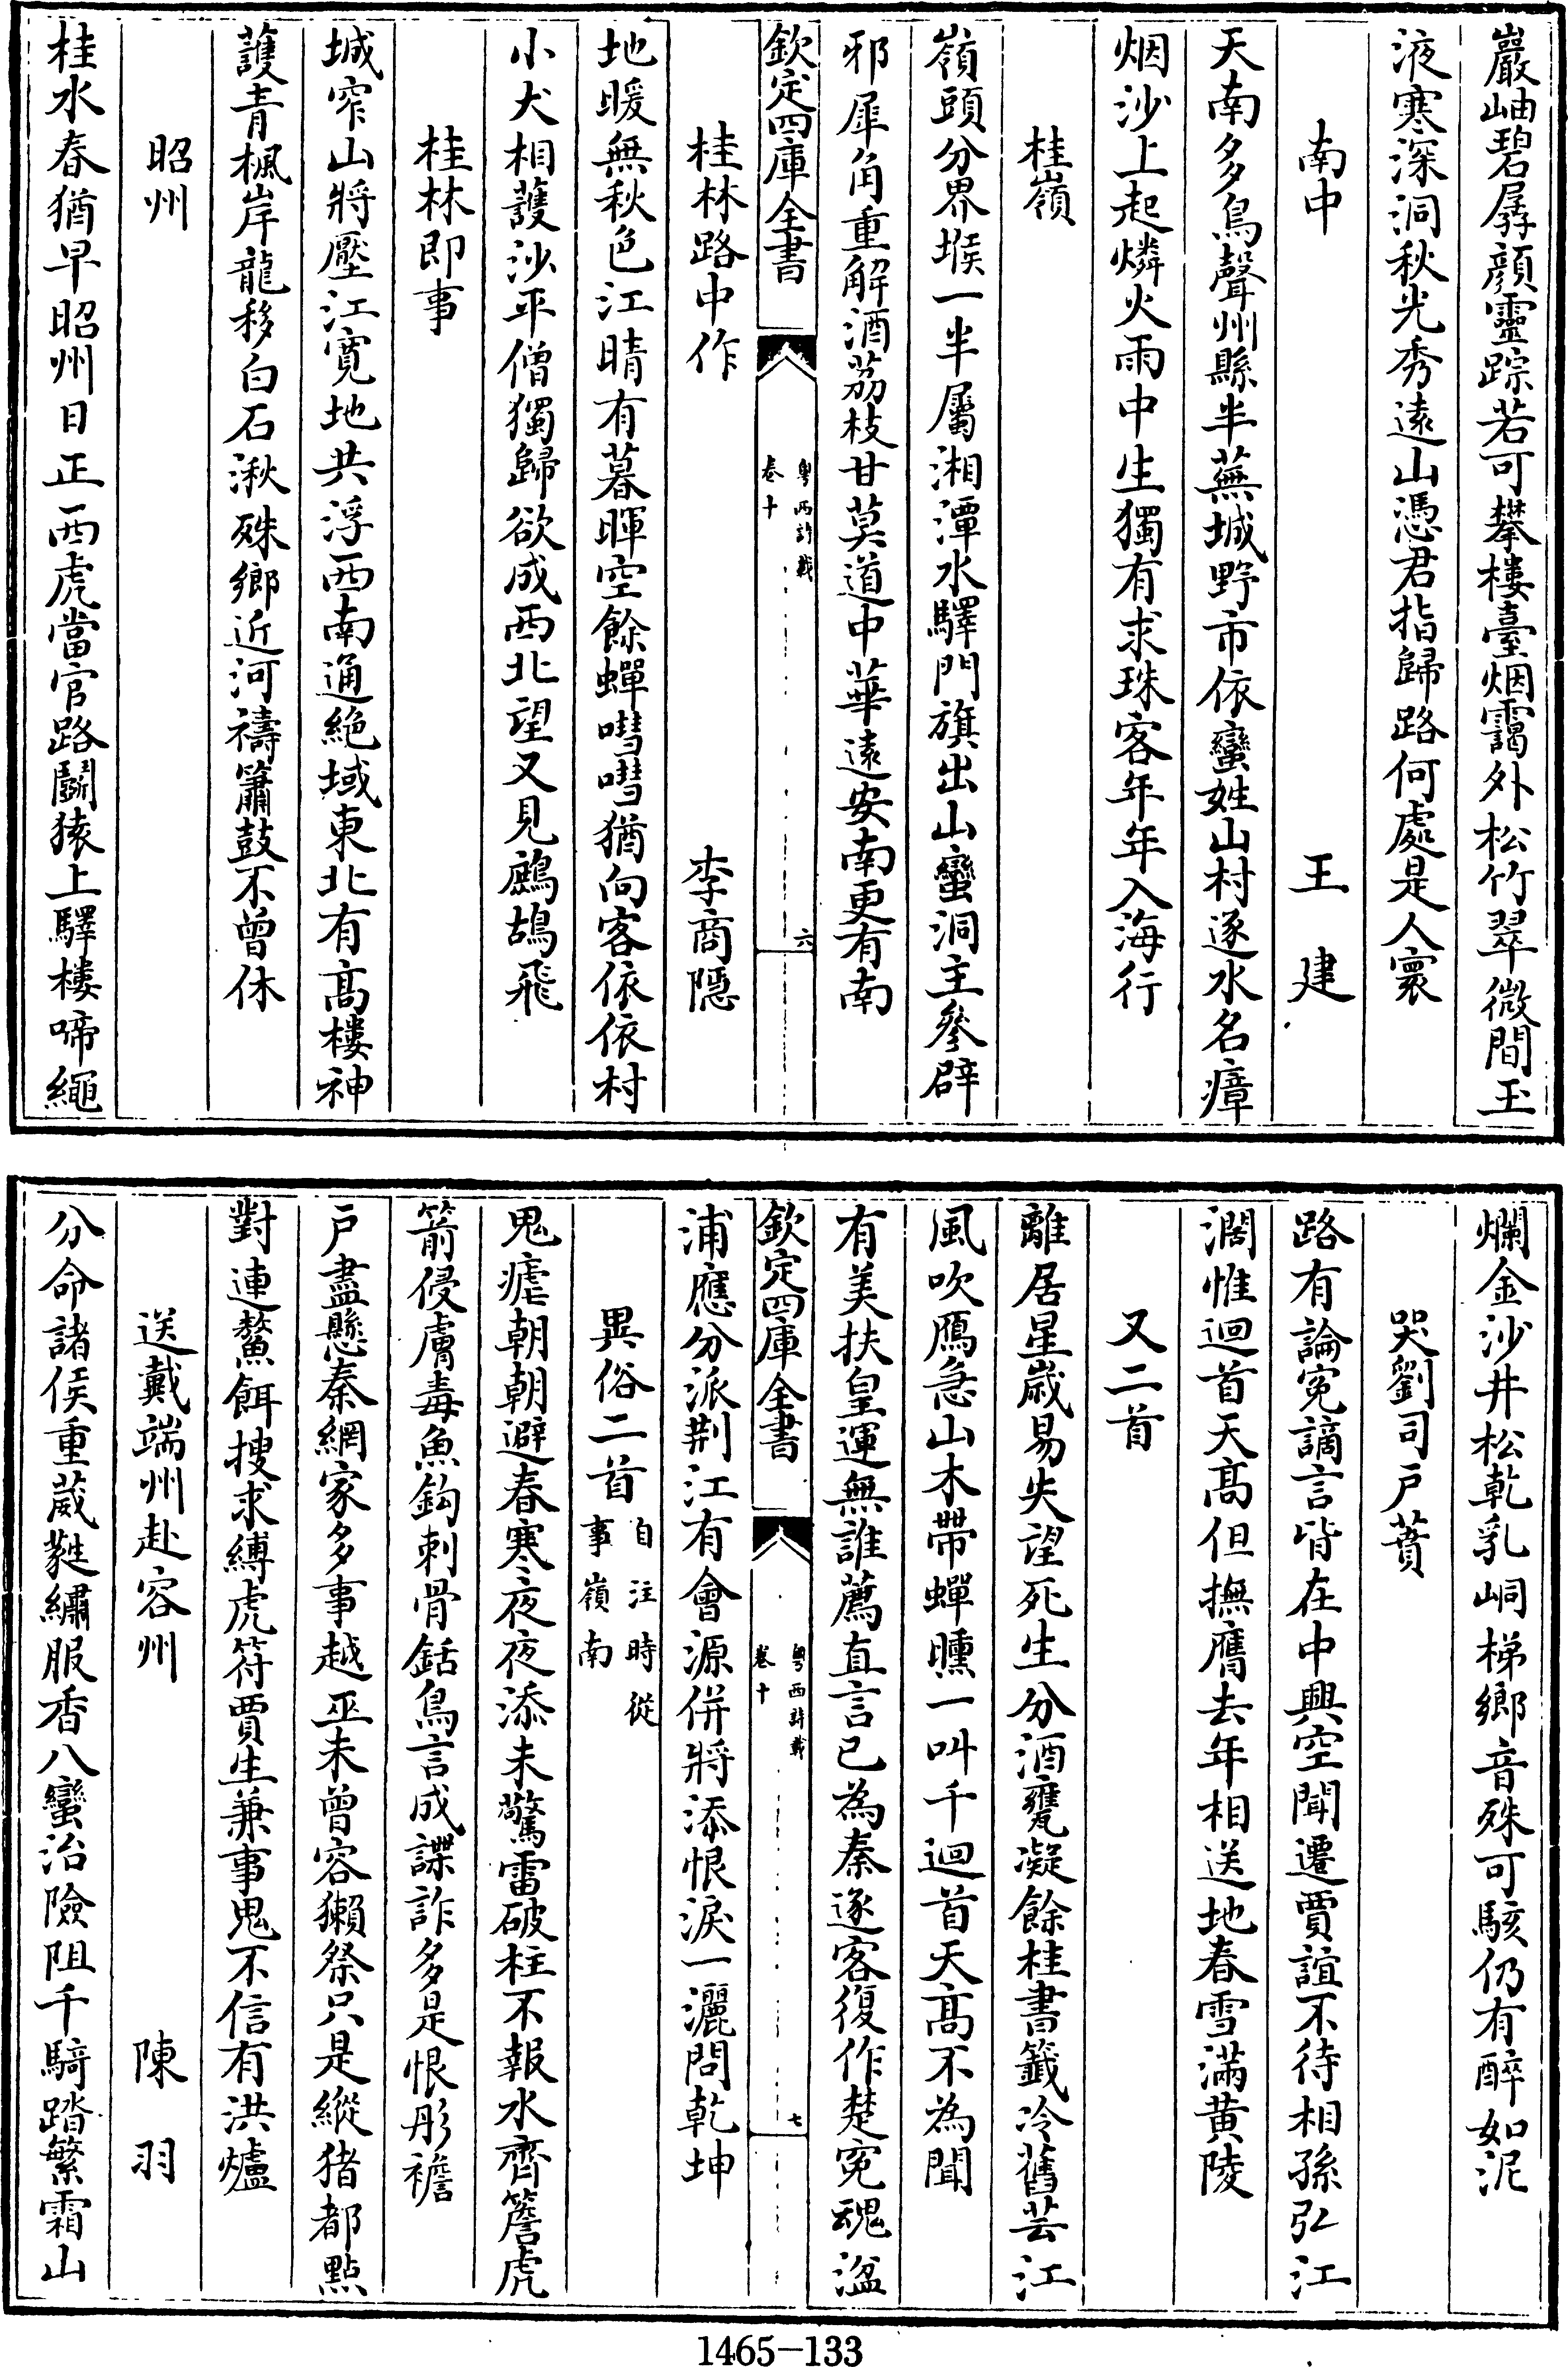 巖岫碧孱顔靈踪若可攀樓臺烟靄外松竹翠微間玉
液寒深洞秋光秀遠山憑君指歸路何處是人寰
南中 王建
天南多鳥聲州縣半蕪城野市依蠻姓山村逐水名瘴
烟沙上起燐火雨中生獨有求珠客年年入海行
桂嶺
嶺頭分界堠一半屬湘潭水驛門旗出山蠻洞主參辟
邪犀角重解酒荔枝甘莫道中華遠安南更有南
欽定四庫全書 粤西詩載 卷十 六
桂林路中作 李商隱
地暖無秋色江晴有暮暉空餘蟬嘒嘒猶向客依依村
小犬相護沙平僧獨歸欲成西北望又見鷓鴣飛
桂林即事
城窄山將壓江寛地共浮西南通絶域東北有髙樓神
護青楓岸龍移白石湫殊鄉近河禱簫鼓不曾休
昭州
桂水春猶早昭州日正西虎當官路鬭猿上驛樓啼繩
爛金沙井松乾乳峒梯鄉音殊可駭仍有醉如泥
哭劉司戸蕡
路有論寃謫言皆在中興空聞遷賈誼不待相孫弘江
濶惟迴首天髙但撫膺去年相送地春雪滿黄陵
又二首
離居星歲易失望死生分酒甕凝餘桂書籤冷舊芸江
風吹鴈急山木帶蟬曛一叫千迴首天髙不為聞
有美扶皇運無誰薦直言已為秦逐客復作楚寃魂湓
欽定四庫全書 粤西詩載 卷十 七
浦應分派荆江有會源併將添恨淚一灑問乾坤
異俗二首 自注時從事嶺南
鬼瘧朝朝避春寒夜夜添未驚雷破柱不報水齊簷虎
箭侵膚毒魚鈎刺骨銛鳥言成諜詐多是恨彤襜
戸盡懸秦網家多事越巫未曾容獺祭只是縱猪都點
對連鰲餌搜求縛虎符賈生兼事鬼不信有洪爐
送戴端州赴容州 陳羽
分命諸侯重葳蕤繡服香八蠻治險阻千騎踏繁霜山
1465-133